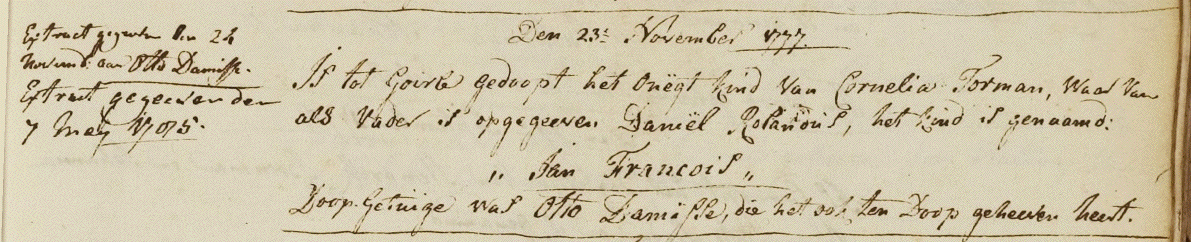 Extract gegeven den 24
Novemb: aan Otto Damisse.
Extract gegeeven den
7 meij 1785.
Den 23e November 1777.
Is tot Goirle gedoopt het onëgt kind van Cornelia Forman, waar van
als vader is opgegeeven Daniël Rolandus, het kind is genaamd:
„ Jan Francois „
Doop-getuige was Otto Damisse, die het ook ten Doop geheeven heeft.